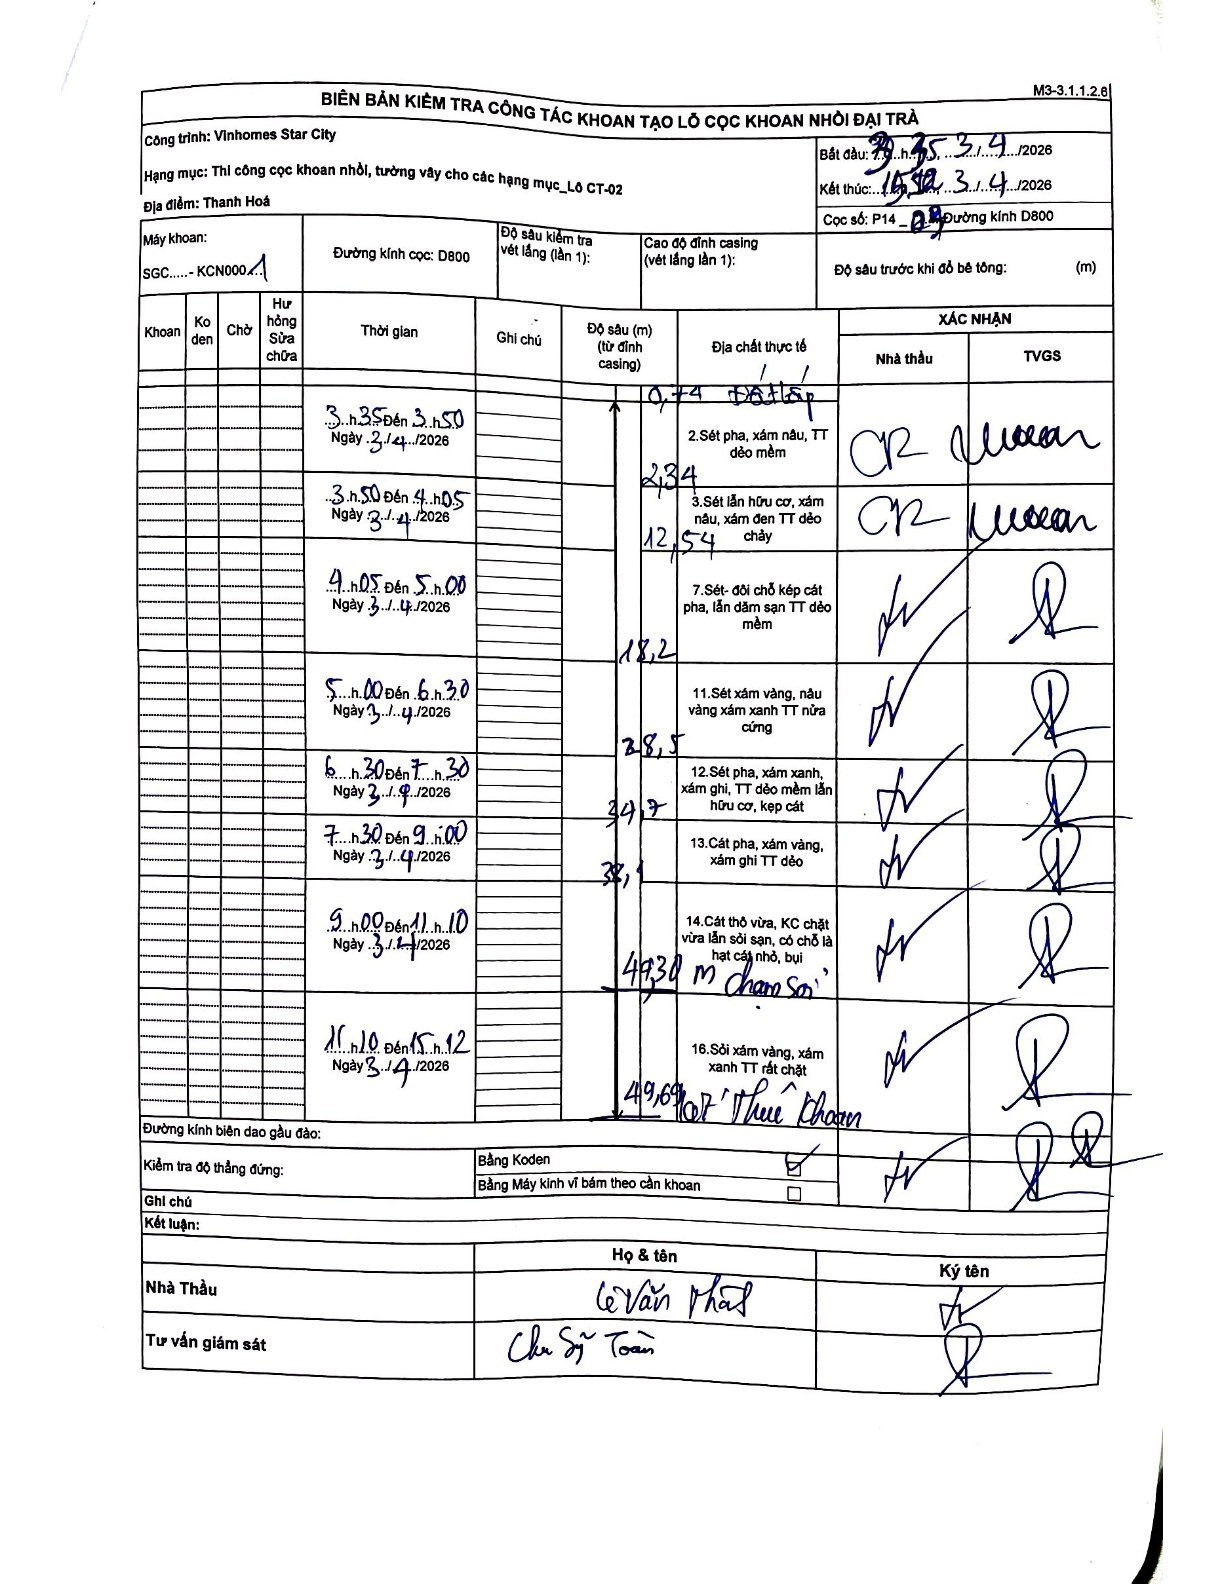 M3-3.1.1.2.6
BIÊN BẢN KIỂM TRA CÔNG TÁC KHOAN TẠO LỖ CỌC KHOAN NHỒI ĐẠI TRÀ
Công trình: Vinhomes Star City
Hạng mục: Thi công cọc khoan nhồi, tường vây cho các hạng mục_Lô CT-02
Địa điểm: Thanh Hoá
Bắt đầu: 3.h.35, 3/4/2026
Kết thúc: 3/4/2026
Cọc số: P14_ Đường kính D800
Máy khoan:
SGC.....- KCN0001
Đường kính cọc: D800
Độ sâu kiểm tra
vét lắng (lần 1):
Cao độ đỉnh casing
(vét lắng lần 1):
Độ sâu trước khi đổ bê tông: (m)
Khoan
Ko
den
Chờ
Hư
hỏng
Sửa
chữa
Thời gian
Ghi chú
Độ sâu (m)
(từ đỉnh
casing)
Địa chất thực tế
XÁC NHẬN
Nhà thầu
TVGS
0,74 Đất lấp
3.h.35 Đến 3.h50
Ngày 3/4/2026
2.Sét pha, xám nâu, TT
dẻo mềm
2,34
3.h.50 Đến 4.h05
Ngày 3/4/2026
3.Sét lẫn hữu cơ, xám
nâu, xám đen TT dẻo
chảy
12,54
4.h05 Đến 5.h.00
Ngày 3/4/2026
7.Sét- đôi chỗ kép cát
pha, lẫn dăm sạn TT dẻo
mềm
18,2
5.h.00 Đến 6.h.30
Ngày 3/4/2026
11.Sét xám vàng, nâu
vàng xám xanh TT nửa
cứng
28,5
6.h.30 Đến 7.h.30
Ngày 3/4/2026
12.Sét pha, xám xanh,
xám ghi, TT dẻo mềm lẫn
hữu cơ, kẹp cát
34,7
7.h.30 Đến 9.h.00
Ngày 3/4/2026
13.Cát pha, xám vàng,
xám ghi TT dẻo
38,1
9.h.00 Đến 11.h.10
Ngày 3/4/2026
14.Cát thô vừa, KC chặt
vừa lẫn sỏi sạn, có chỗ là
hạt cát nhỏ, bụi
49,30 m Chạm Sỏi
11.h10 Đến 15.h.12
Ngày 3/4/2026
16.Sỏi xám vàng, xám
xanh TT rất chặt
49,69 Thuê Khoan
Đường kính biên dao gầu đào:
Kiểm tra độ thẳng đứng:
Bằng Koden
Bằng Máy kinh vĩ bám theo cần khoan
Ghi chú
Kết luận:
Họ & tên
Ký tên
Nhà Thầu
Lê Văn Nhất
Tư vấn giám sát
Chu Sỹ Toàn